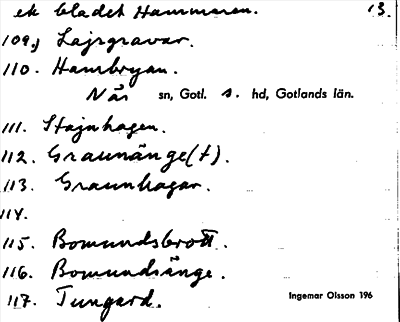 ek bladet Hammaren. 13.
109,) Lajrgravar.
110. Hambryan.
När sn, Gotl. s. hd, Gotlands län.
111. Stajnhagen.
112. Graunänge(t).
113. Graunhagar.
114.
115. Bomundsbrott.
116. Bomundsänge.
117. Tungard. Ingemar Olsson 196